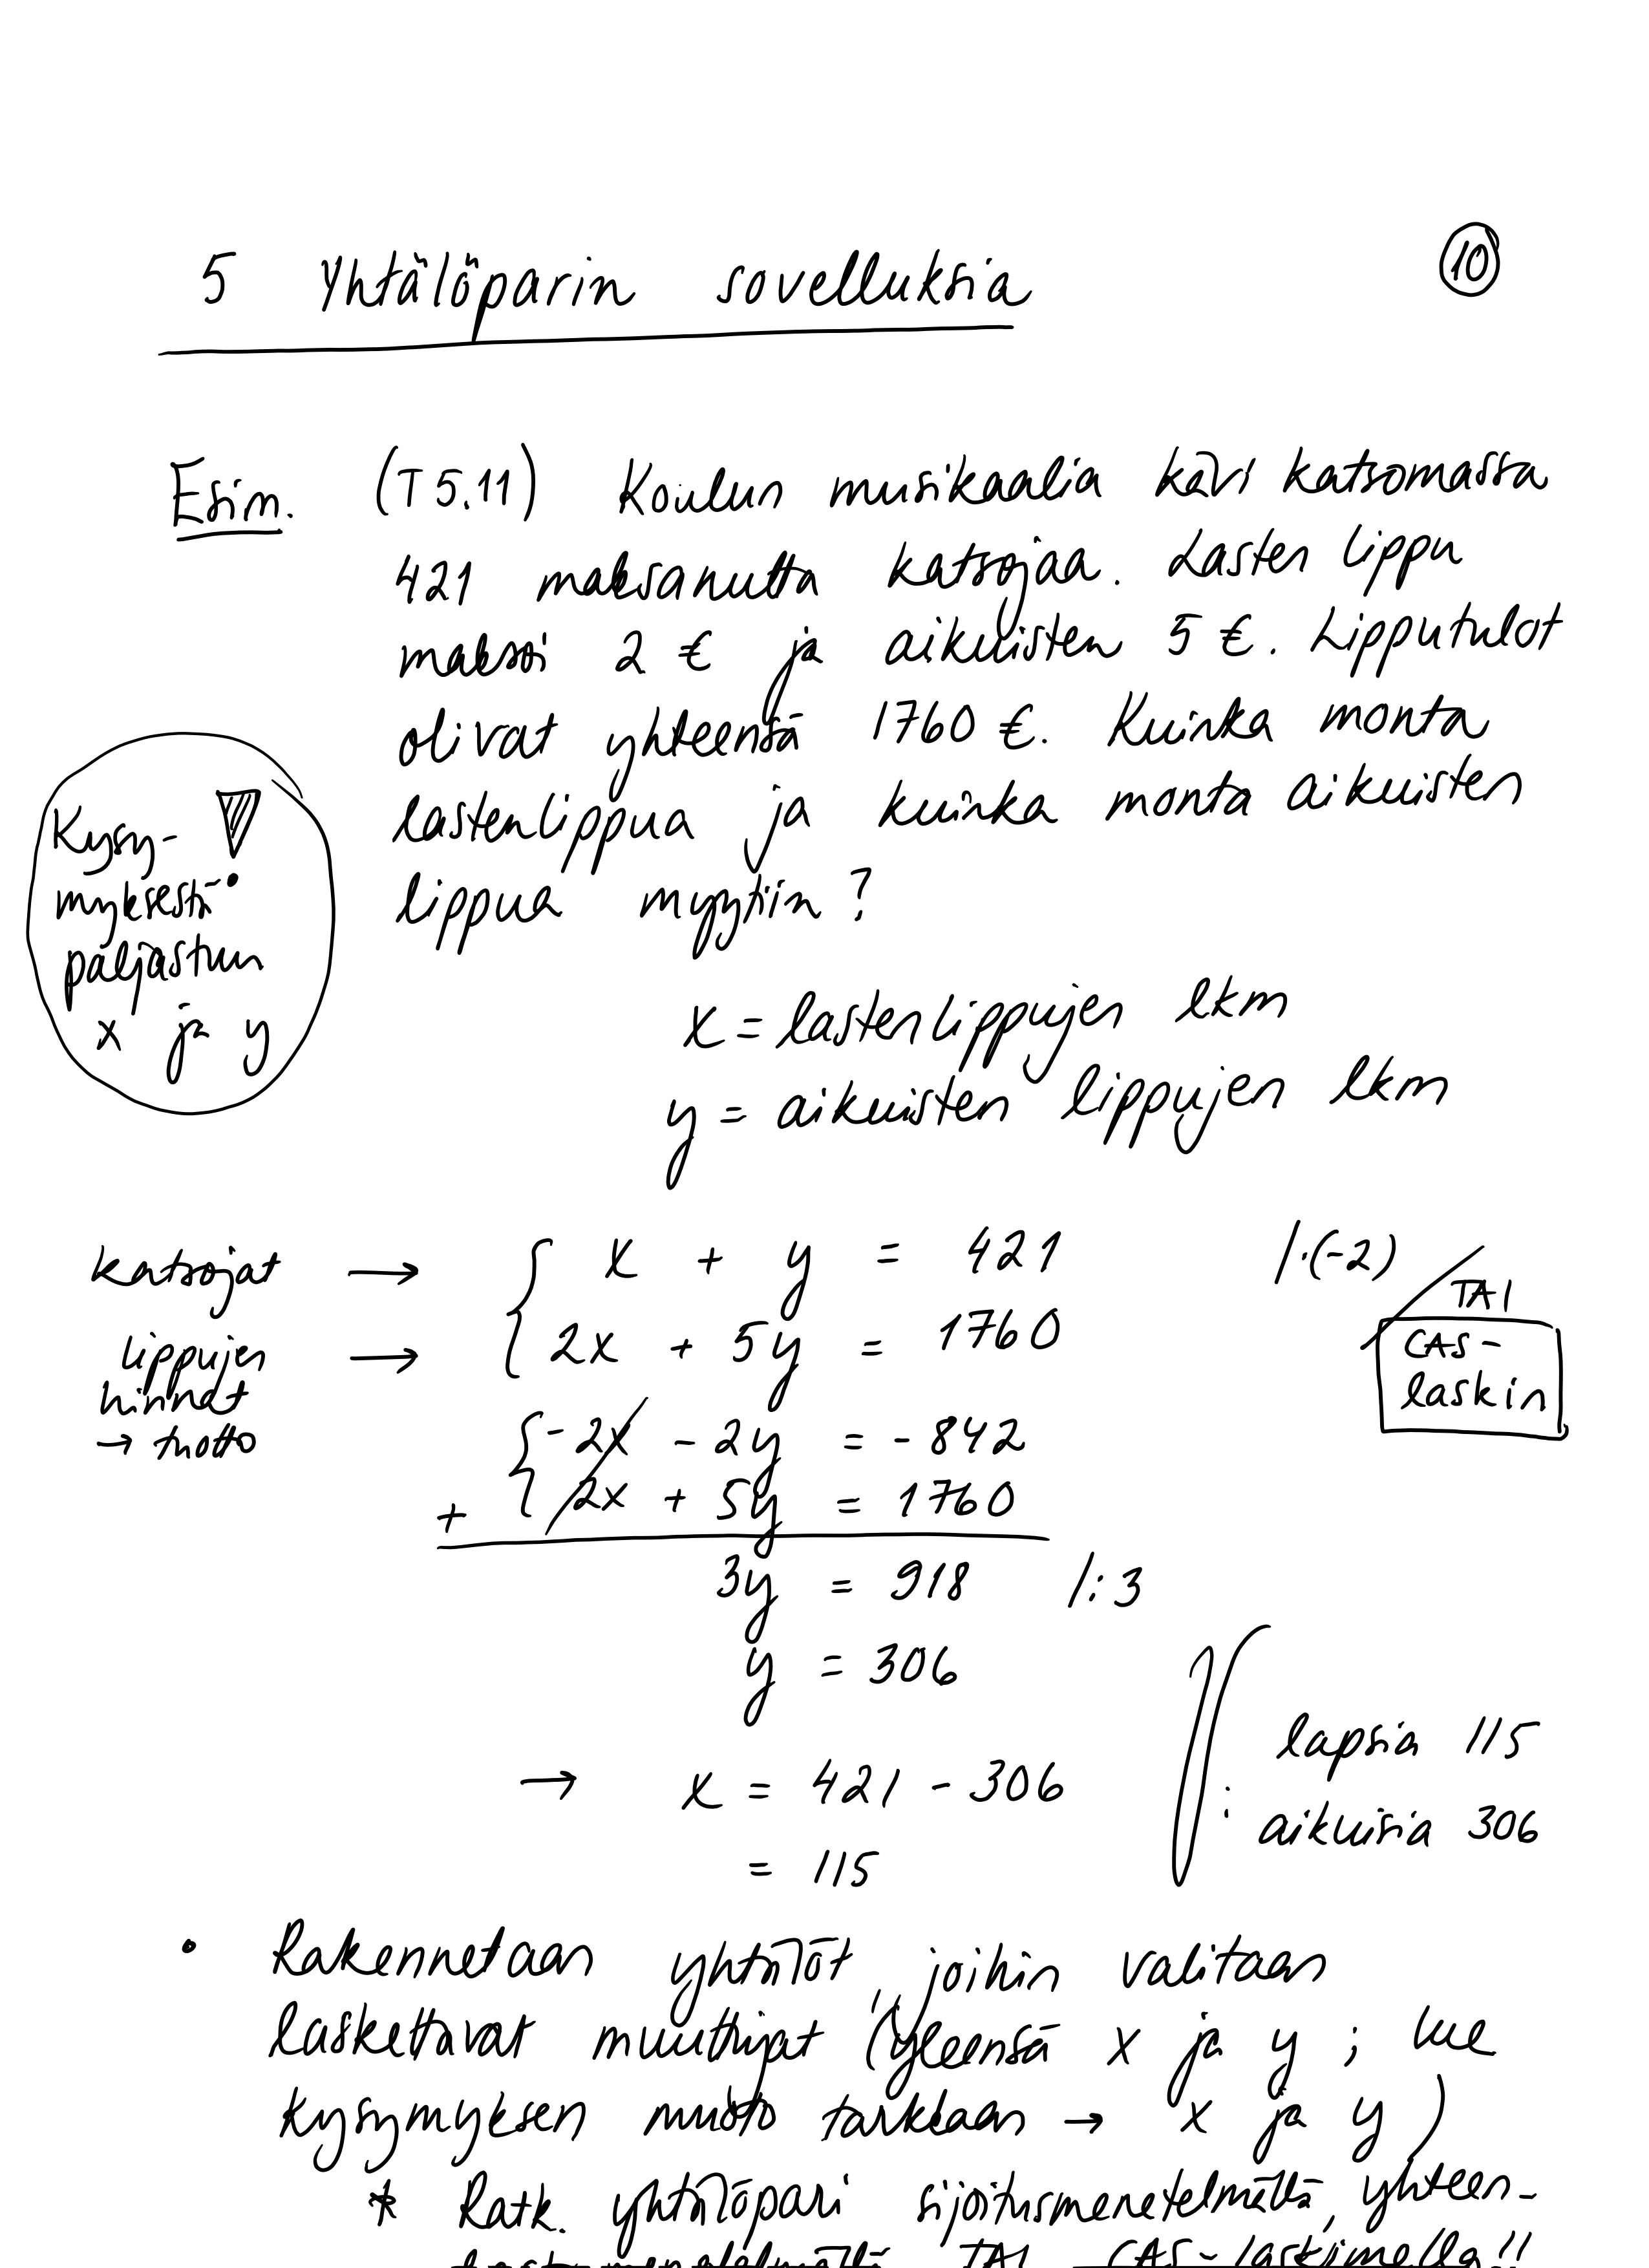 5 Yhtälöparin sovelluksia
10
Esim. (T 5.11) Koulun musikaalia kävi katsomassa
421 maksanutta katsojaa. Lasten lippu
maksoi 2 € ja aikuisten 5 €. Lipputulot
olivat yhteensä 1760 €. Kuinka monta
lastenlippua ja kuinka monta aikuisten
lippua myytiin?
Kysy-
myksestä
paljastuu
x ja y
x = lastenlippujen lkm
y = aikuisten lippujen lkm
katsojat → x + y = 421 /·(-2)
lippujen → 2x + 5y = 1760
hinnat
→ tuotto
TAI
CAS-
laskin
-2x - 2y = -842
+ 2x + 5y = 1760
3y = 918 /:3
y = 306
→ x = 421 - 306
= 115
V: lapsia 115
aikuisia 306
• Rakennetaan yhtälöt, joihin valitaan
laskettavat muuttujat (yleensä x ja y ; lue
kysymyksen muoto tarkkaan → x ja y)
* Ratk. yhtälöpari sijoitusmenetelmällä, yhteen-
laskumenetelmällä TAI CAS-laskimella!!